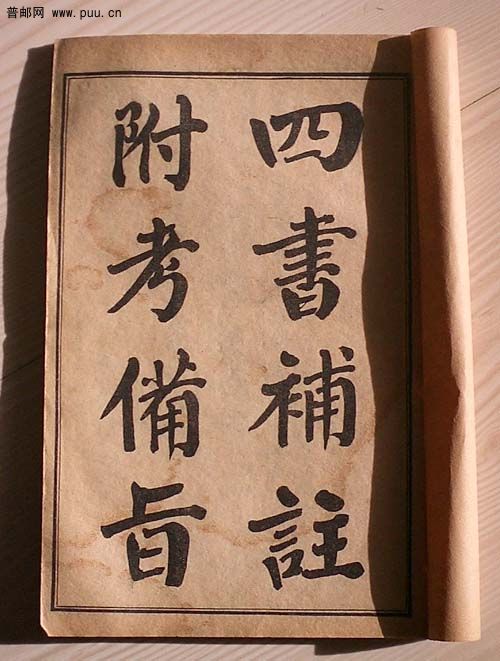 普邮网 www.puu.cn
四書補註
附考備旨